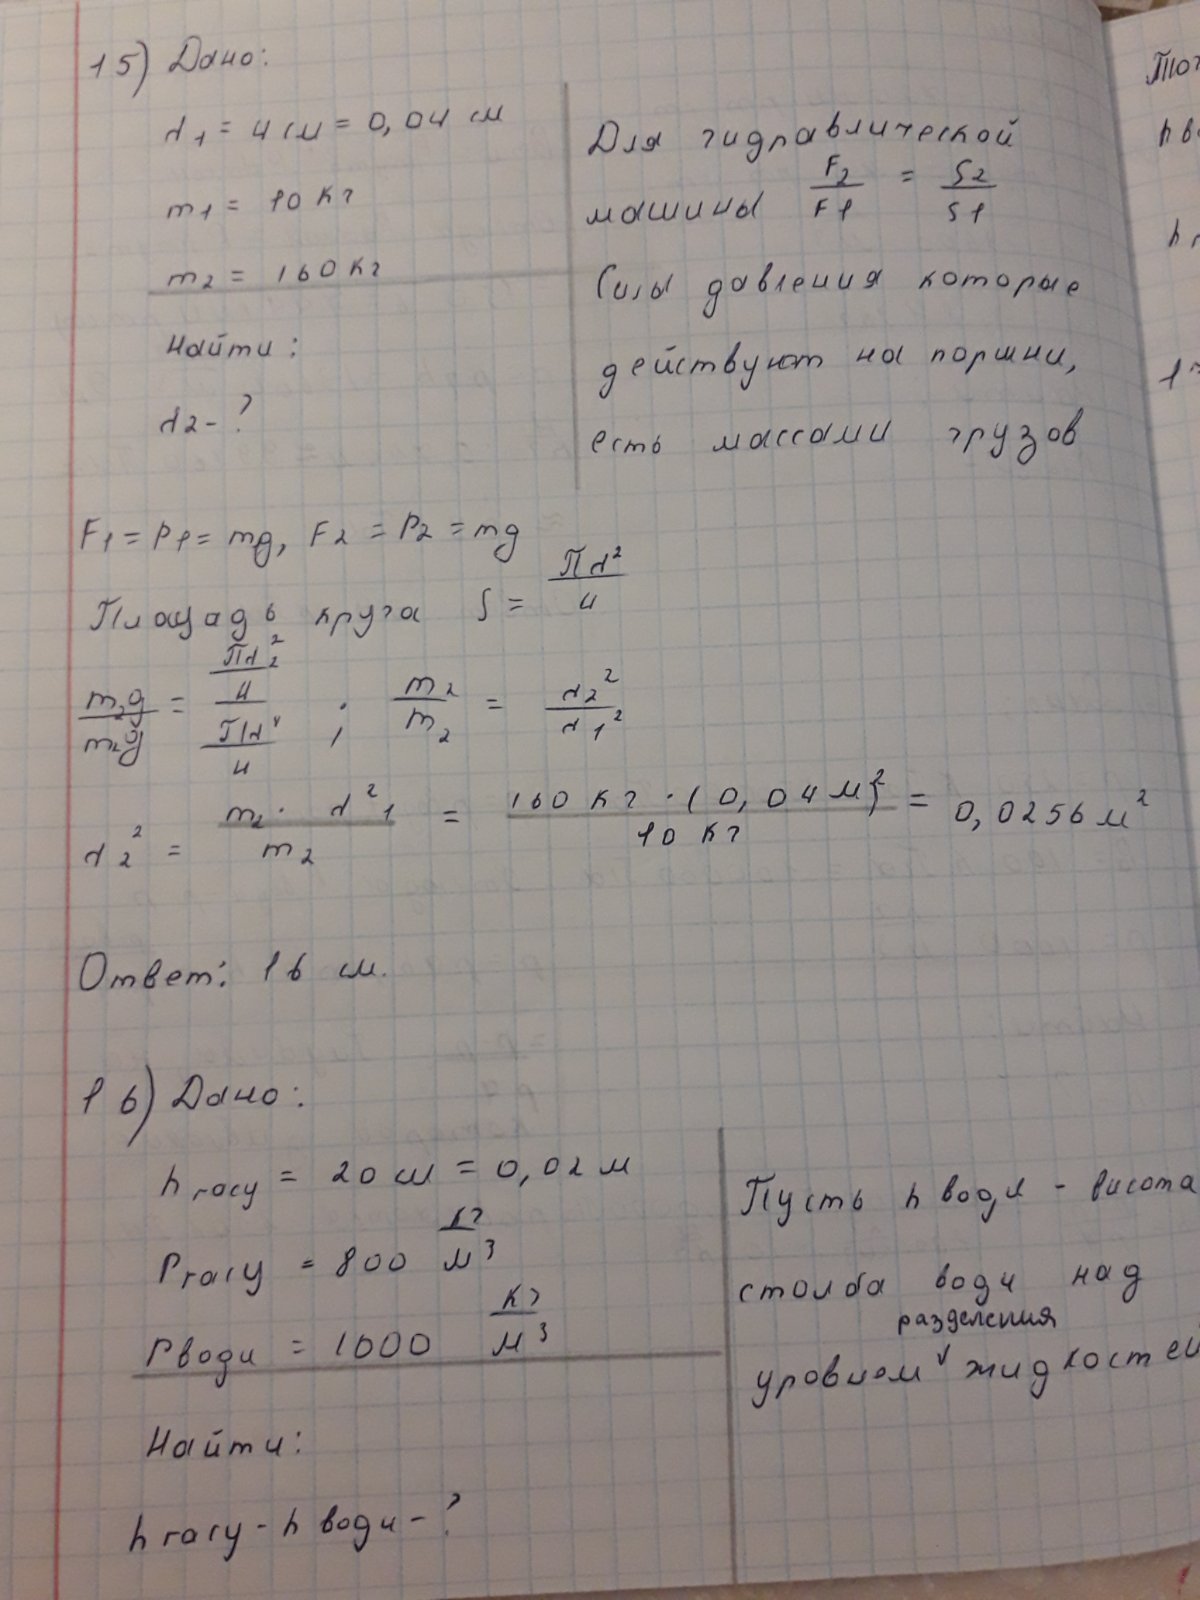 15) Дано:
d1 = 4 см = 0,04 см
m1 = 10 кг
m2 = 160 кг
Найти:
d2 - ?
Для гидравлической
машины F2/F1 = S2/S1
Силы давления которые
действуют на поршни,
есть массами грузов
F1 = P1 = mg, F2 = P2 = mg
Площадь круга S = Пd²/4
m2g/m2g = (Пd2²/4)/(Пd²/4) ; m2/m2 = d2²/d1²
d2² = m2 · d²1/m2 = 160 кг · (0,04 м)²/10 кг = 0,0256 м²
Ответ: 16 см.
16) Дано:
h гасу = 20 см = 0,02 м
Pгасу = 800 кг/м³
Pводи = 1000 кг/м³
Найти:
h гасу - h води - ?
Пусть h води - висота
столба води над
разделения
уровнем жидкостей
Тог
h в
h г
1